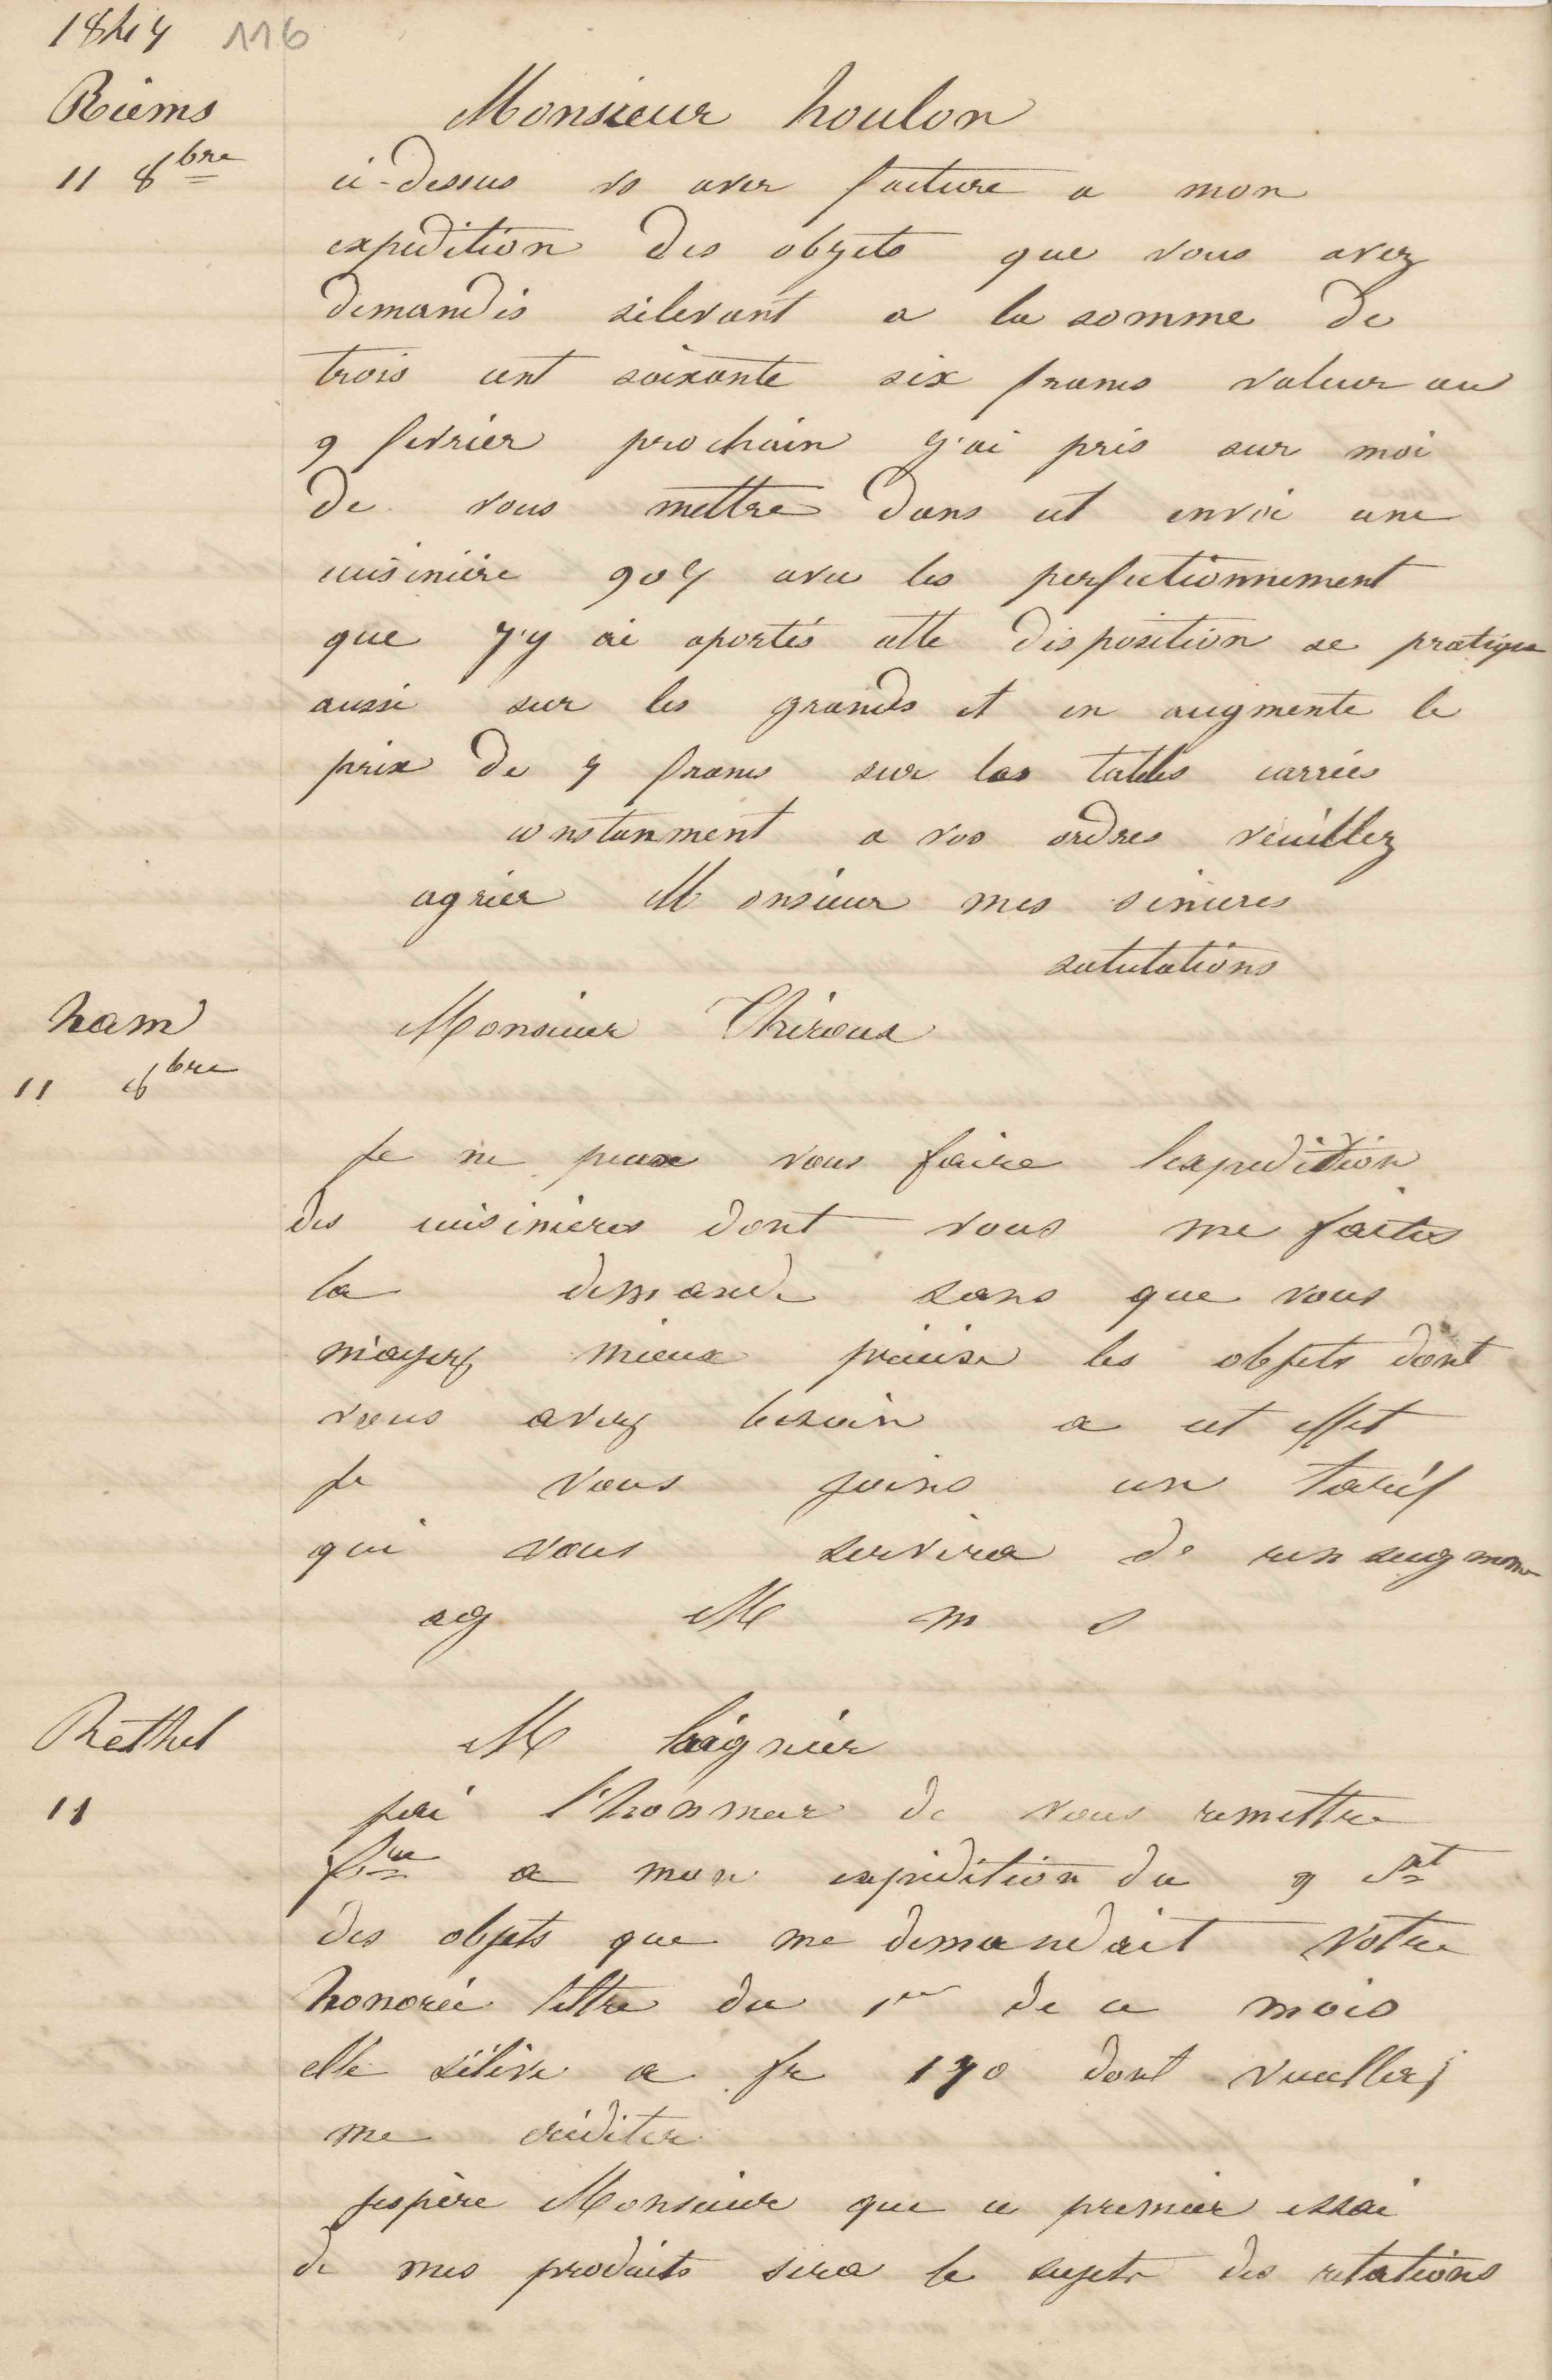 1844 116
Reims
11 8bre
Monsieur houlon
ci-dessus vs avez facture a mon
expedition des objets que vous avez
demandés sélevant a la somme de
trois cent soixante six francs valeur au
9 fevrier prochain j'ai pris sur moi
de vous mettre dans cet envoi une
cuisinière 904 avec les perfectionnement
que j'y ai aportés cette disposition se pratique
aussi sur les grands et en augmente le
prix de 4 francs sur les tables carrées
constanment a vos ordres veuillez
agréer Monsieur mes sinceres
salutations
ham
11 8bre
Monsieur Thiroux
Je ne peux vous faire lexpedition
des cuisinieres dont vous me faites
la demande sans que vous
m'ayez mieux précisé les objets dont
vous avez besoin a cet effet
je vous joins un tarif
qui vous servira de renseignem
ag M m s
Rethel
11
M laignier
jai l'honneur de vous remettre
fre a mon expédition du 9 ct
des objets que me demandait votre
honorée lettre du 1er de ce mois
elle sélève a fr 140 dont veuillez
me créditer
jespère Monsieur que ce premier essai
de mes produits sera le sujet des relations